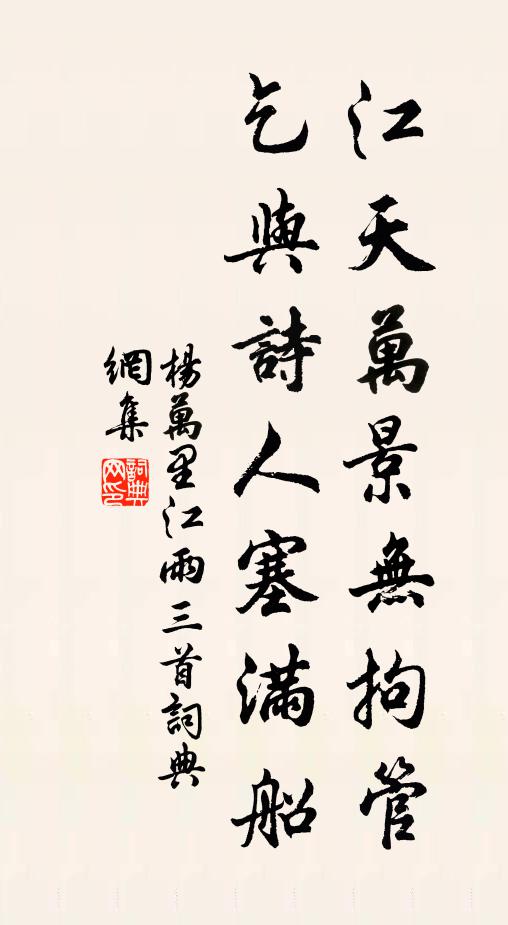 江天萬景無拘管
乞與詩人塞滿船
楊萬里江雨三首詞典
網集
詞典
网印